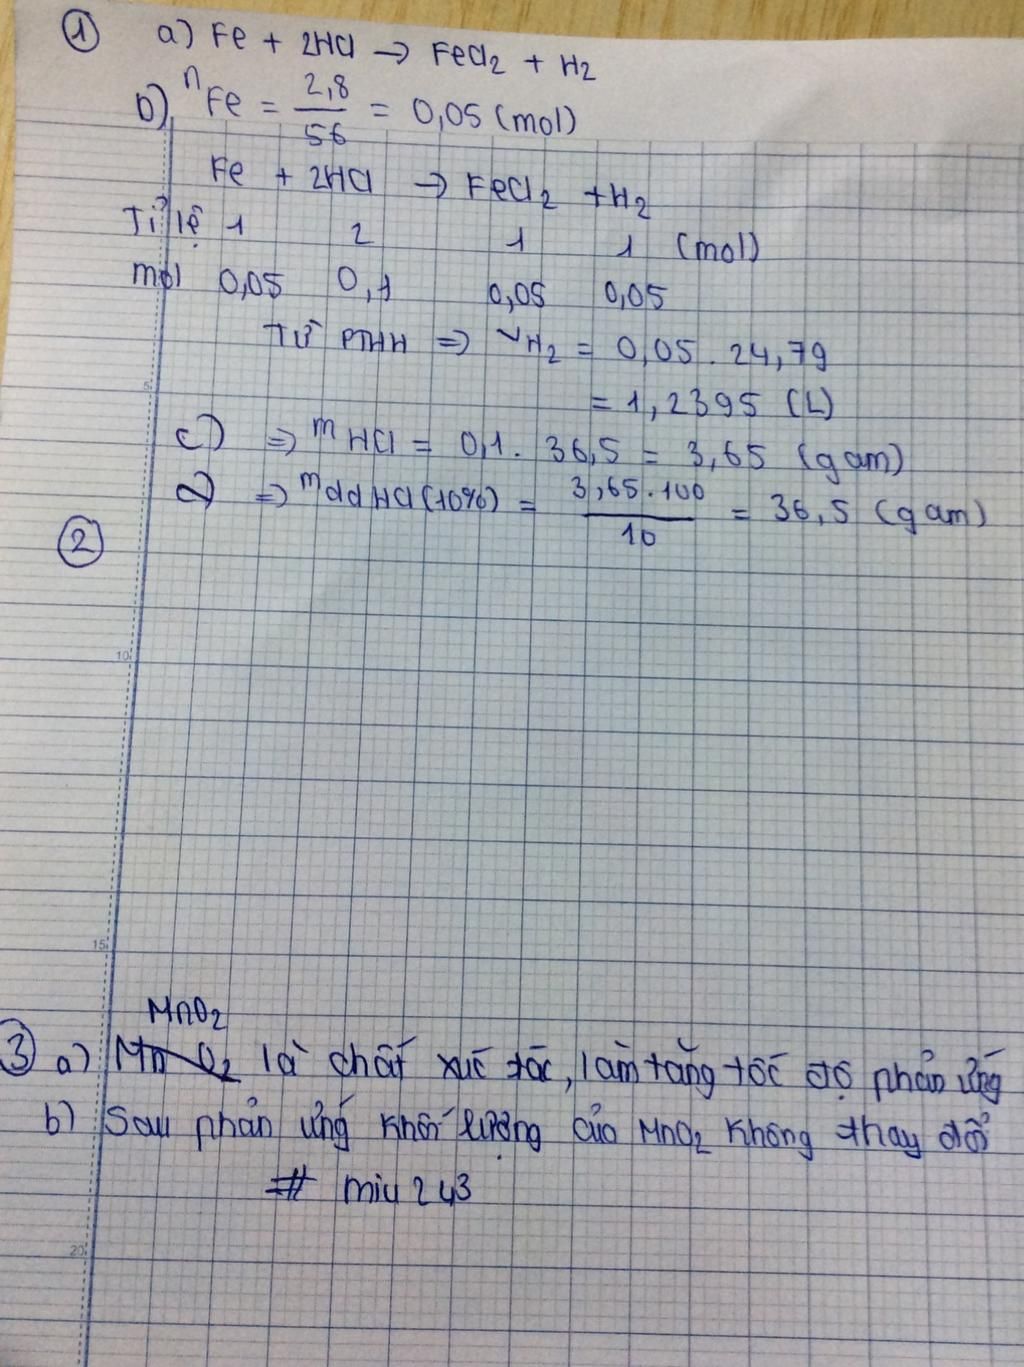 ① a) Fe + 2HCl → FeCl2 + H2
b) nFe = 2,8/56 = 0,05 (mol)
Fe + 2HCl → FeCl2 + H2
Tỉ lệ 1 2 1 1 (mol)
mol 0,05 0,1 0,05 0,05
Từ PTHH ⇒ VH2 = 0,05 . 24,79
= 1,2395 (L)
c) ⇒ mHCl = 0,1 . 36,5 = 3,65 (gam)
d) ⇒ mddHCl (10%) = 3,65.100/10 = 36,5 (gam)
②
5
10
15
MnO2
③ a) là chất xúc tác, làm tăng tốc độ phản ứng
b) Sau phản ứng khối lượng của MnO2 không thay đổi
# miu 243
20